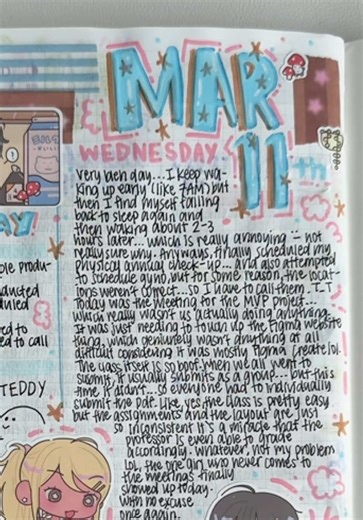 MAR
11th
WEDNESDAY
Very bleh day... I keep wa-
king up early (like 7AM) but
then I find myself falling
back to sleep again and
then waking about 2-3
hours later... which is really annoying :- not
really sure why. Anyways, finally scheduled my
physical annual check-up... and also attempted
to schedule gyno but for some reason, the locat-
ions weren't correct... so I have to call them. T-T
Today was the meeting for the MVP project...
which really wasn't us actually doing anything.
It was just needing to touch up the Figma website
thing, which geniunely wasn't anything at all
difficult considering it was mostly Figma create lol.
The class itself is so poor. When we all went to
submit, it usually submits as a group... but this
time it didn't... so everyone had to individually
submit the pdf. Like, yes the class is pretty easy
but the assignments and the layout are just
so inconsistent it's a miracle that the
professor is even able to grade
accordingly. Whatever, not my problem
lol. The one girl who never comes to
the meetings finally
showed up today.
with no excuse
once again.
AY
ple produ-
ducted
duled
ed to
ed to call
TEDDY